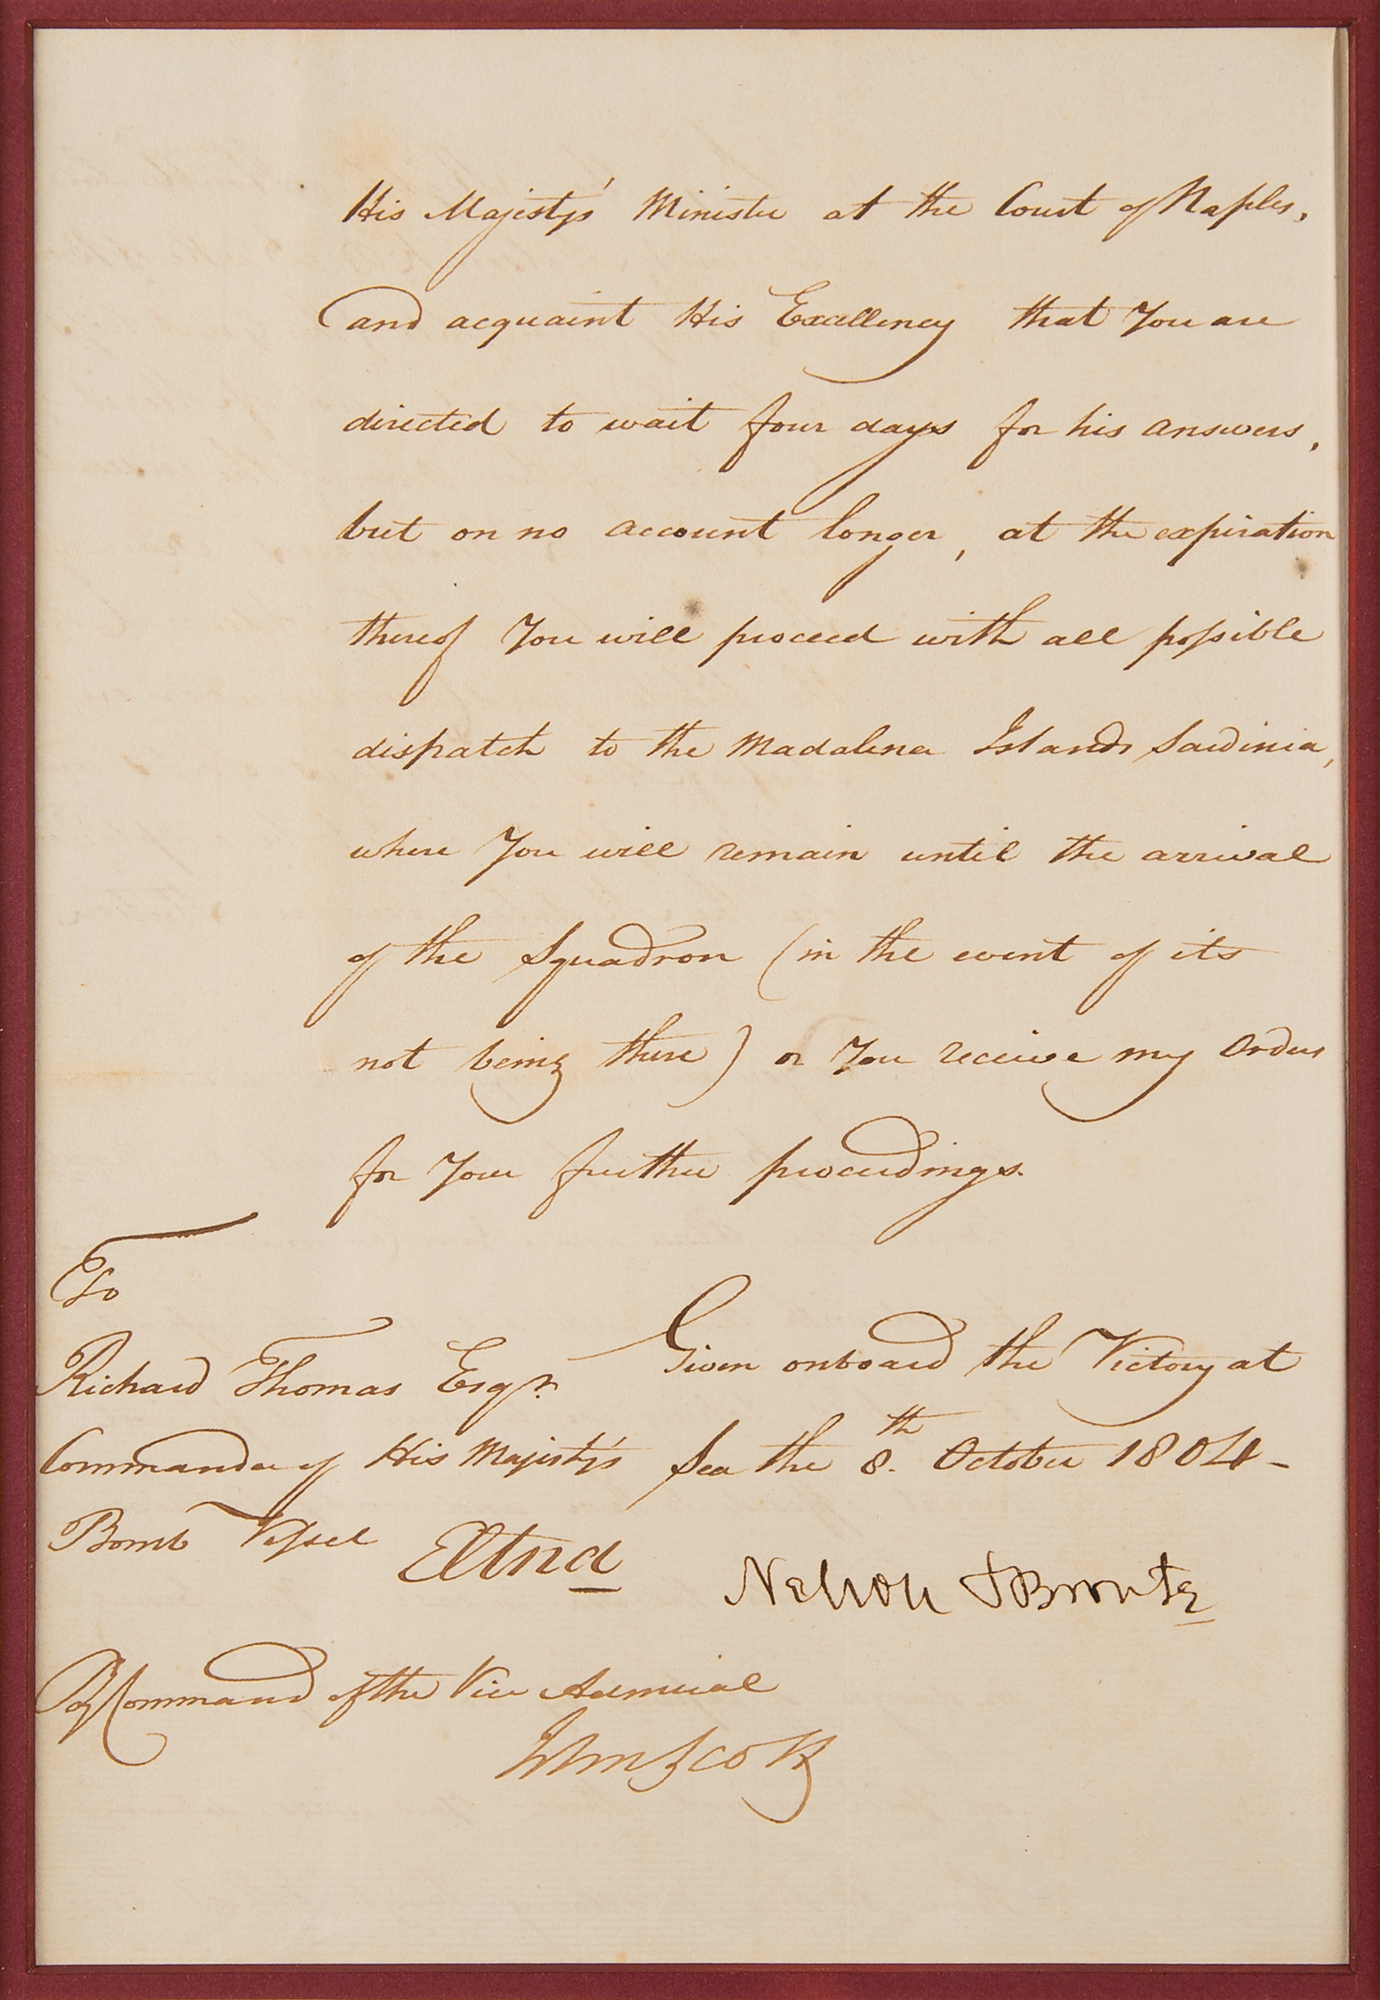 His Majesty's Minister at the Court of Naples,
and acquaint His Excellency that You are
directed to wait four days for his answers,
but on no account longer, at the expiration
thereof You will proceed with all possible
dispatch to the Madalena Islands Sardinia,
where You will remain until the arrival
of the Squadron (in the event of its
not being there) or You receive my Orders
for Your further proceedings.
To
Richard Thomas Esqr.
Commander of His Majesty's
Bomb Vessel Etna
Given onboard the Victory at
Sea the 8th. October 1804 -
Nelson & Bronte
By Command of the Vice Admiral
John Scott